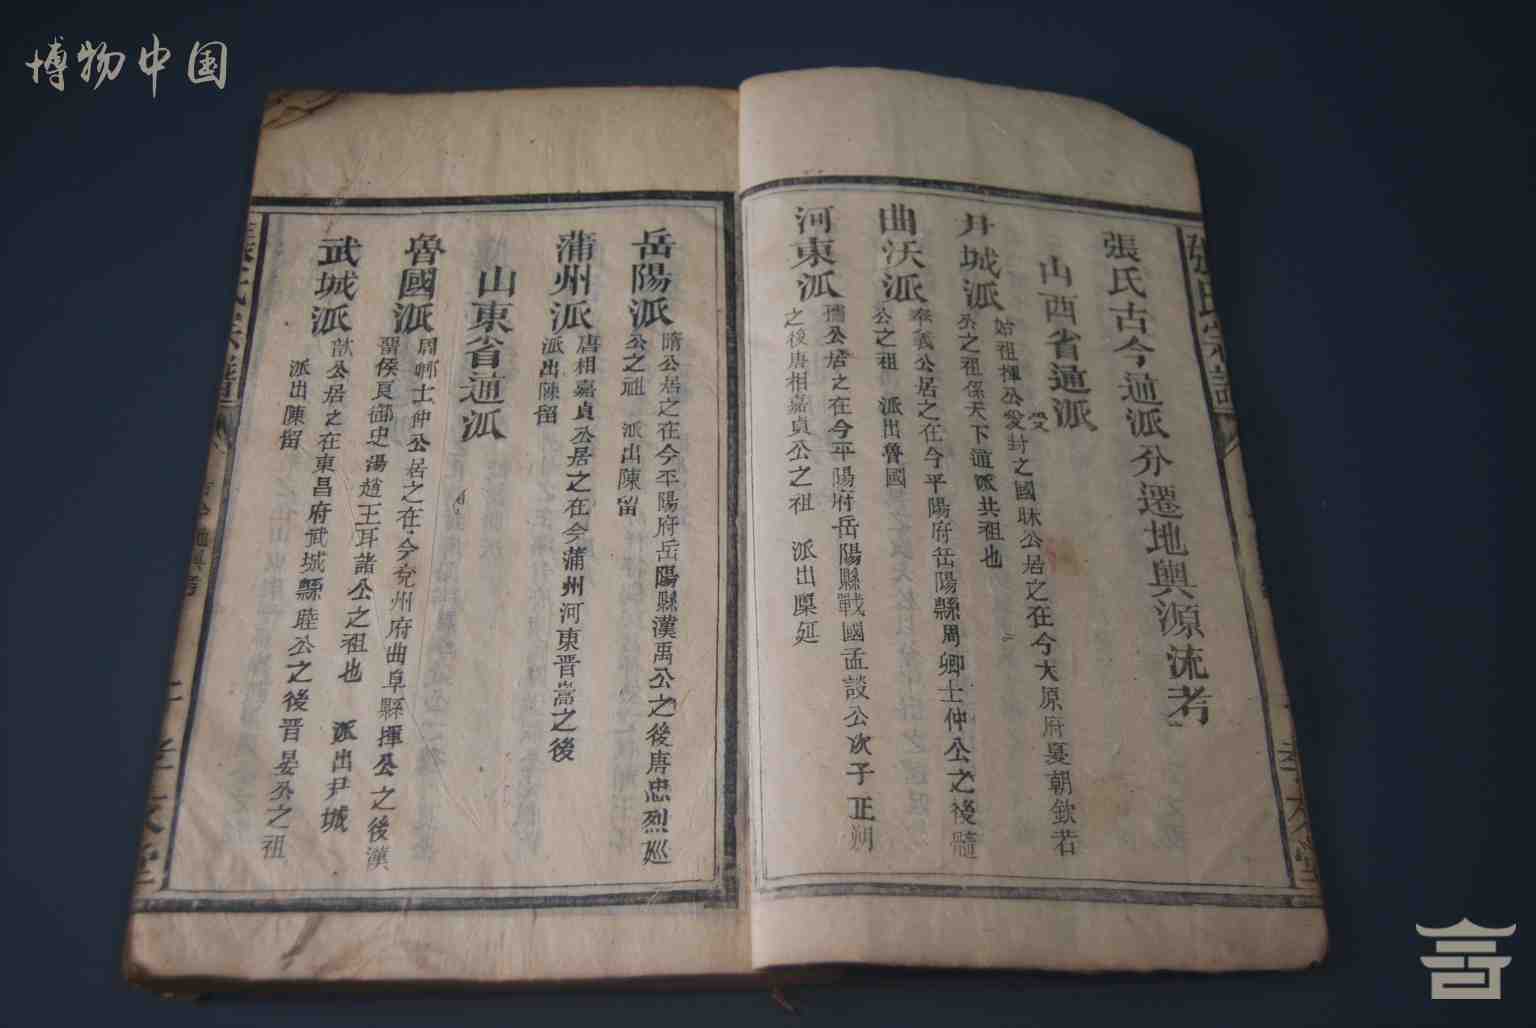 博物中国
張氏古今通派分遷地輿源流考
山西省通派
尹城派
始祖揮公受封之國昧公居之在今大原府夏朝欽若
公之祖係天下通派共祖也
曲沃派
孝義公居之在今平陽府岳陽縣周卿士仲公之後髓
公之祖 派出魯國
河東派
孺公居之在今平陽府岳陽縣戰國孟談公次子正朔
之後唐相嘉貞公之祖 派出
岳陽派
隋公居之在今平陽府岳陽縣漢禹公之後唐忠烈巡
公之祖 派出陳留
蒲州派
唐相嘉貞公居之在今蒲州河東晋嵩之後
派出陳留
山東省通派
魯國派
周卿士仲公居之在今兗州府曲阜縣揮公之後漢
留侯良御史湯趙王耳諸公之祖也 派出尹城
武城派
歆公居之在東昌府武城縣睦公之後晋晏公之祖
派出陳留
張氏宗譜
孝友堂